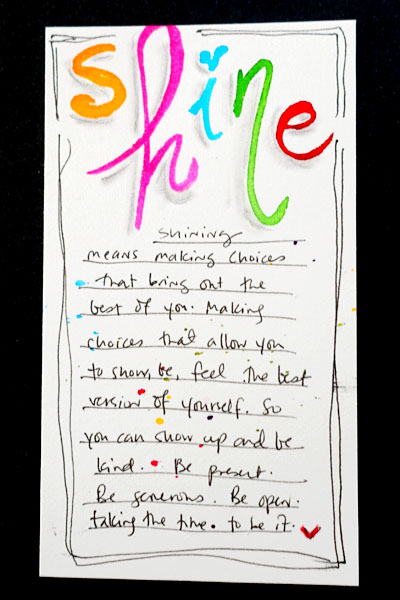 shine
shining
means making choices.
that bring out the
best of you. Making
choices that allow you
to show, be, feel the best
version of yourself. So
you can show up and be
kind. Be present.
Be generous. Be open.
taking the time. to be it.